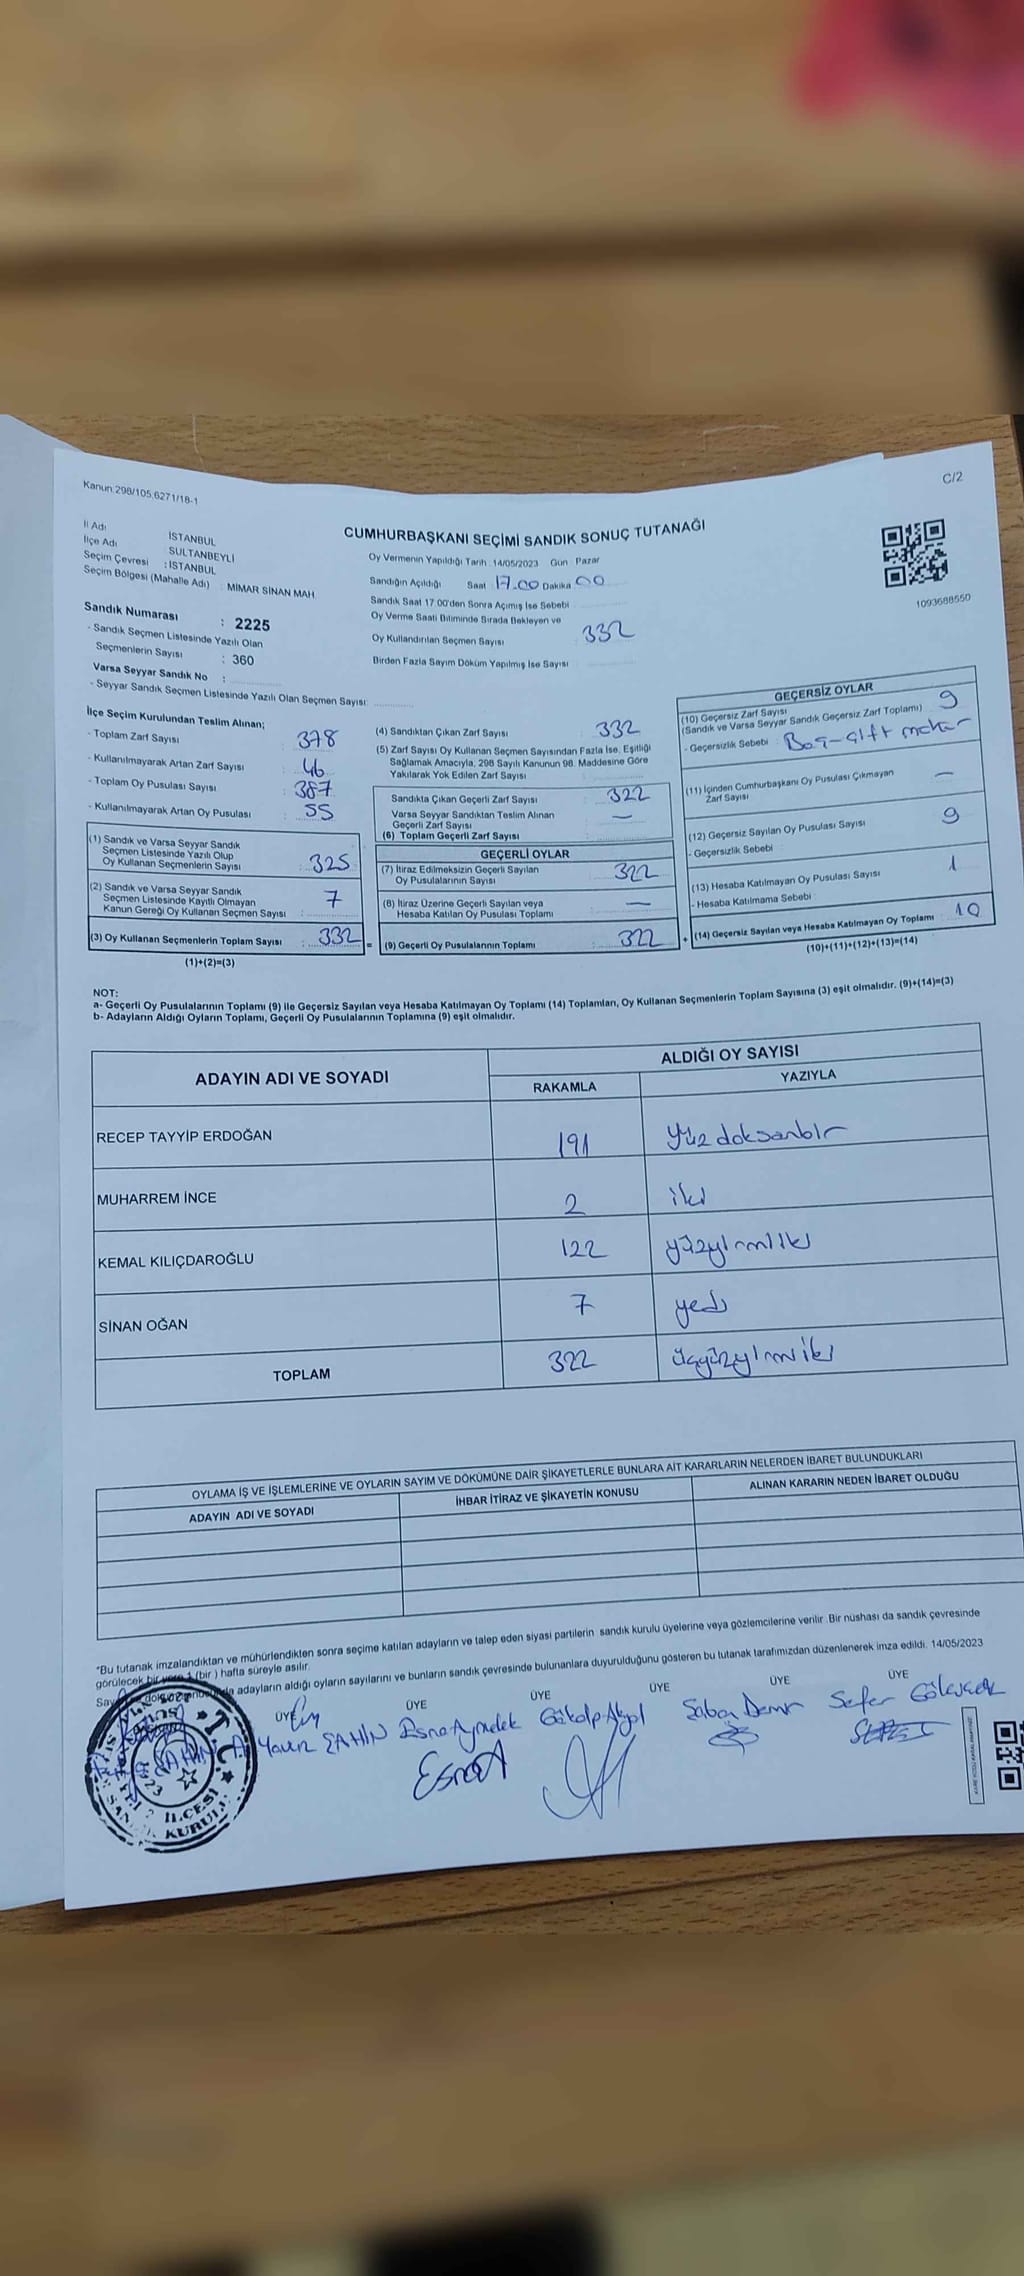 Kanun:298/105,6271/18-1
C/2
İl Adı İSTANBUL
İlçe Adı SULTANBEYLİ
Seçim Çevresi : İSTANBUL
Seçim Bölgesi (Mahalle Adı) : MİMAR SİNAN MAH
Sandık Numarası : 2225
- Sandık Seçmen Listesinde Yazılı Olan
Seçmenlerin Sayısı : 360
Varsa Seyyar Sandık No :
- Seyyar Sandık Seçmen Listesinde Yazılı Olan Seçmen Sayısı:
CUMHURBAŞKANI SEÇİMİ SANDIK SONUÇ TUTANAĞI
Oy Vermenin Yapıldığı Tarih :14/05/2023 Gün Pazar
Sandığın Açıldığı Saat 17.00 Dakika 00
Sandık Saat 17 00'den Sonra Açımış İse Sebebi
Oy Verme Saati Bitiminde Sırada Bekleyen ve
Oy Kullandırılan Seçmen Sayısı 332
Birden Fazla Sayım Döküm Yapılmış İse Sayısı
1093688550
İlçe Seçim Kurulundan Teslim Alınan;
- Toplam Zarf Sayısı : 378
- Kullanılmayarak Artan Zarf Sayısı : 46
- Toplam Oy Pusulası Sayısı : 387
- Kullanılmayarak Artan Oy Pusulası : 55
(1) Sandık ve Varsa Seyyar Sandık
Seçmen Listesinde Yazılı Olup
Oy Kullanan Seçmenlerin Sayısı : 325
(2) Sandık ve Varsa Seyyar Sandık
Seçmen Listesinde Kayıtlı Olmayan
Kanun Gereği Oy Kullanan Seçmen Sayısı : 7
(3) Oy Kullanan Seçmenlerin Toplam Sayısı : 332 =
(1)+(2)=(3)
(4) Sandıktan Çıkan Zarf Sayısı : 332
(5) Zarf Sayısı Oy Kullanan Seçmen Sayısından Fazla İse, Eşitliği
Sağlamak Amacıyla, 298 Sayılı Kanunun 98. Maddesine Göre
Yakılarak Yok Edilen Zarf Sayısı
Sandıkta Çıkan Geçerli Zarf Sayısı : 322
Varsa Seyyar Sandıktan Teslim Alınan
Geçerli Zarf Sayısı : —
(6) Toplam Geçerli Zarf Sayısı
GEÇERLİ OYLAR
(7) İtiraz Edilmeksizin Geçerli Sayılan
Oy Pusulalarının Sayısı : 322
(8) İtiraz Üzerine Geçerli Sayılan veya
Hesaba Katılan Oy Pusulası Toplamı : —
(9) Geçerli Oy Pusulalarının Toplamı : 322 +
GEÇERSİZ OYLAR
(10) Geçersiz Zarf Sayısı
(Sandık ve Varsa Seyyar Sandık Geçersiz Zarf Toplamı) 9
- Geçersizlik Sebebi : Boş-çift mühür
(11) İçinden Cumhurbaşkanı Oy Pusulası Çıkmayan
Zarf Sayısı —
(12) Geçersiz Sayılan Oy Pusulası Sayısı 9
- Geçersizlik Sebebi
(13) Hesaba Katılmayan Oy Pusulası Sayısı 1
- Hesaba Katılmama Sebebi
(14) Geçersiz Sayılan veya Hesaba Katılmayan Oy Toplamı 10
(10)+(11)+(12)+(13)=(14)
NOT:
a- Geçerli Oy Pusulalarının Toplamı (9) ile Geçersiz Sayılan veya Hesaba Katılmayan Oy Toplamı (14) Toplamları, Oy Kullanan Seçmenlerin Toplam Sayısına (3) eşit olmalıdır. (9)+(14)=(3)
b- Adayların Aldığı Oyların Toplamı, Geçerli Oy Pusulalarının Toplamına (9) eşit olmalıdır.
ADAYIN ADI VE SOYADI ALDIĞI OY SAYISI
RAKAMLA YAZIYLA
RECEP TAYYİP ERDOĞAN 191 yüz doksanbir
MUHARREM İNCE 2 iki
KEMAL KILIÇDAROĞLU 122 yüzyirmiiki
SİNAN OĞAN 7 yedi
TOPLAM 322 üçyüzyirmiiki
OYLAMA İŞ VE İŞLEMLERİNE VE OYLARIN SAYIM VE DÖKÜMÜNE DAİR ŞİKAYETLERLE BUNLARA AİT KARARLARIN NELERDEN İBARET BULUNDUKLARI
ADAYIN ADI VE SOYADI İHBAR İTİRAZ VE ŞİKAYETİN KONUSU ALINAN KARARIN NEDEN İBARET OLDUĞU
*Bu tutanak imzalandıktan ve mühürlendikten sonra seçime katılan adayların ve talep eden siyasi partilerin sandık kurulu üyelerine veya gözlemcilerine verilir .Bir nüshası da sandık çevresinde
görülecek bir yere 1 (bir ) hafta süreyle asılır.
adayların aldığı oyların sayılarını ve bunların sandık çevresinde bulunanlara duyurulduğunu gösteren bu tutanak tarafımızdan düzenlenerek imza edildi. 14/05/2023
ÜYE ÜYE ÜYE ÜYE ÜYE ÜYE
Yavuz ŞAHİN Esra Gökalp Akyol Şaban Demir Sefer
T.C.
İLÇESİ
SANDIK KURULU